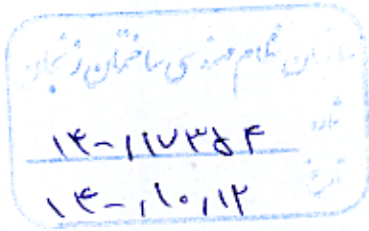 سازمان نظام مهندسی ساختمان زنجان
شماره ۱۴۰۰/۱۷۳۵۴
تاریخ ۱۴۰۰/۱۰/۱۲